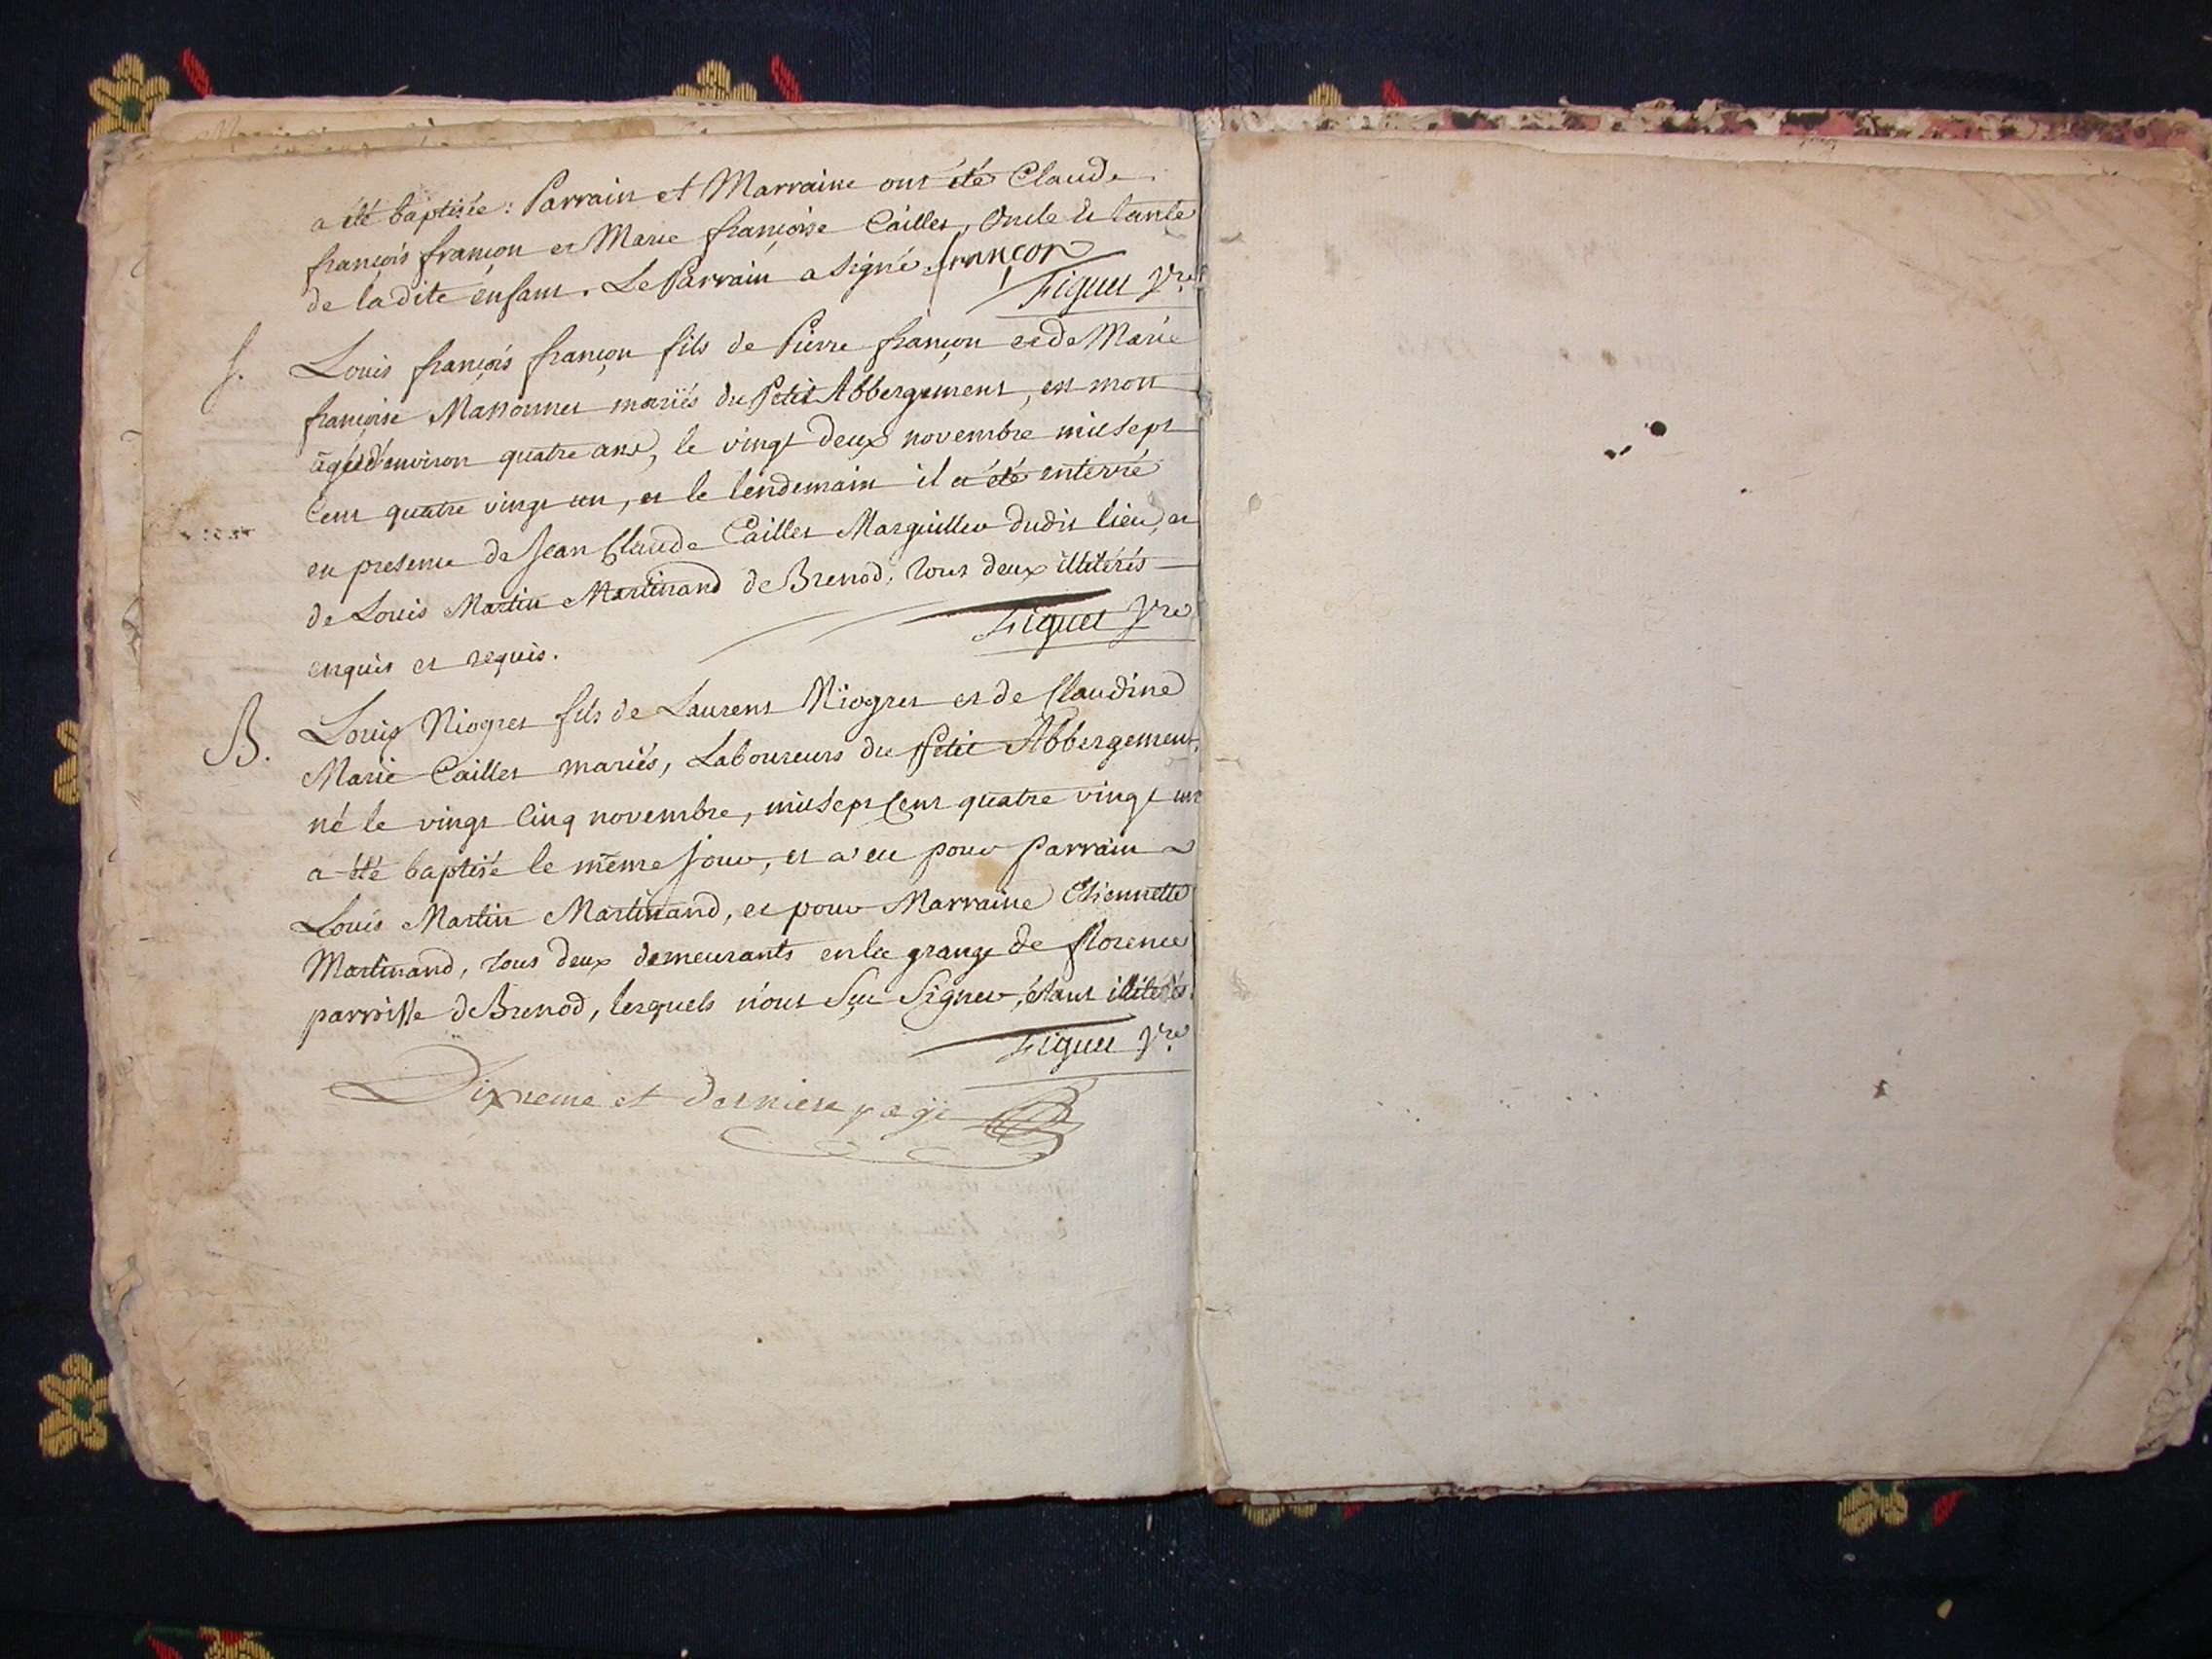 a été baptisée : Parrain et Marraine ont été Claude
françois françon et Marie françoise Caillet, Oncle et tante
de ladite enfant. Le Parrain a signé. françon
Figuet Vre
S. Louis françois françon fils de Pierre françon et de Marie
françoise Massonnet mariés du Petit Abbergement, est mort
âgé d'environ quatre ans, le vingt deux novembre mil sept
Cent quatre vingt un, et le lendemain il a été enterré
en presence de Jean Claude Caillet Marguillier dudit lieu, et
de Louis Martin Martinand de Brenod, tous deux illitérés
enquis et requis. Figuet Vre
B. Louis Niogret fils de Laurent Niogret et de Claudine
Marie Caillet mariés, Laboureurs du Petit Abbergement,
né le vingt Cinq novembre, mil sept Cent quatre vingt un
a été baptisé le même Jour, et a eu pour Parrain
Louis Martin Martinand, et pour Marraine Etiennette
Martinand, tous deux demeurants en la grange de florence
parroisse de Brenod, lesquels n'ont Sçu Signer, étant illiterés.
Figuet Vre
Dixneme et derniere page